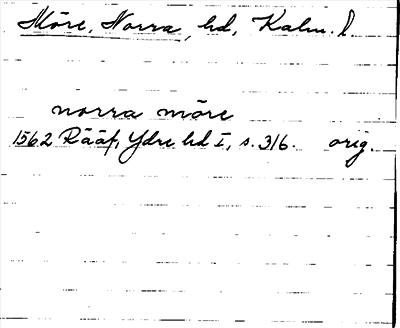 Möre, Norra, hd, Kalm. l.
norra möre
1562 Rääf, Ydre hd I, s. 316. orig.